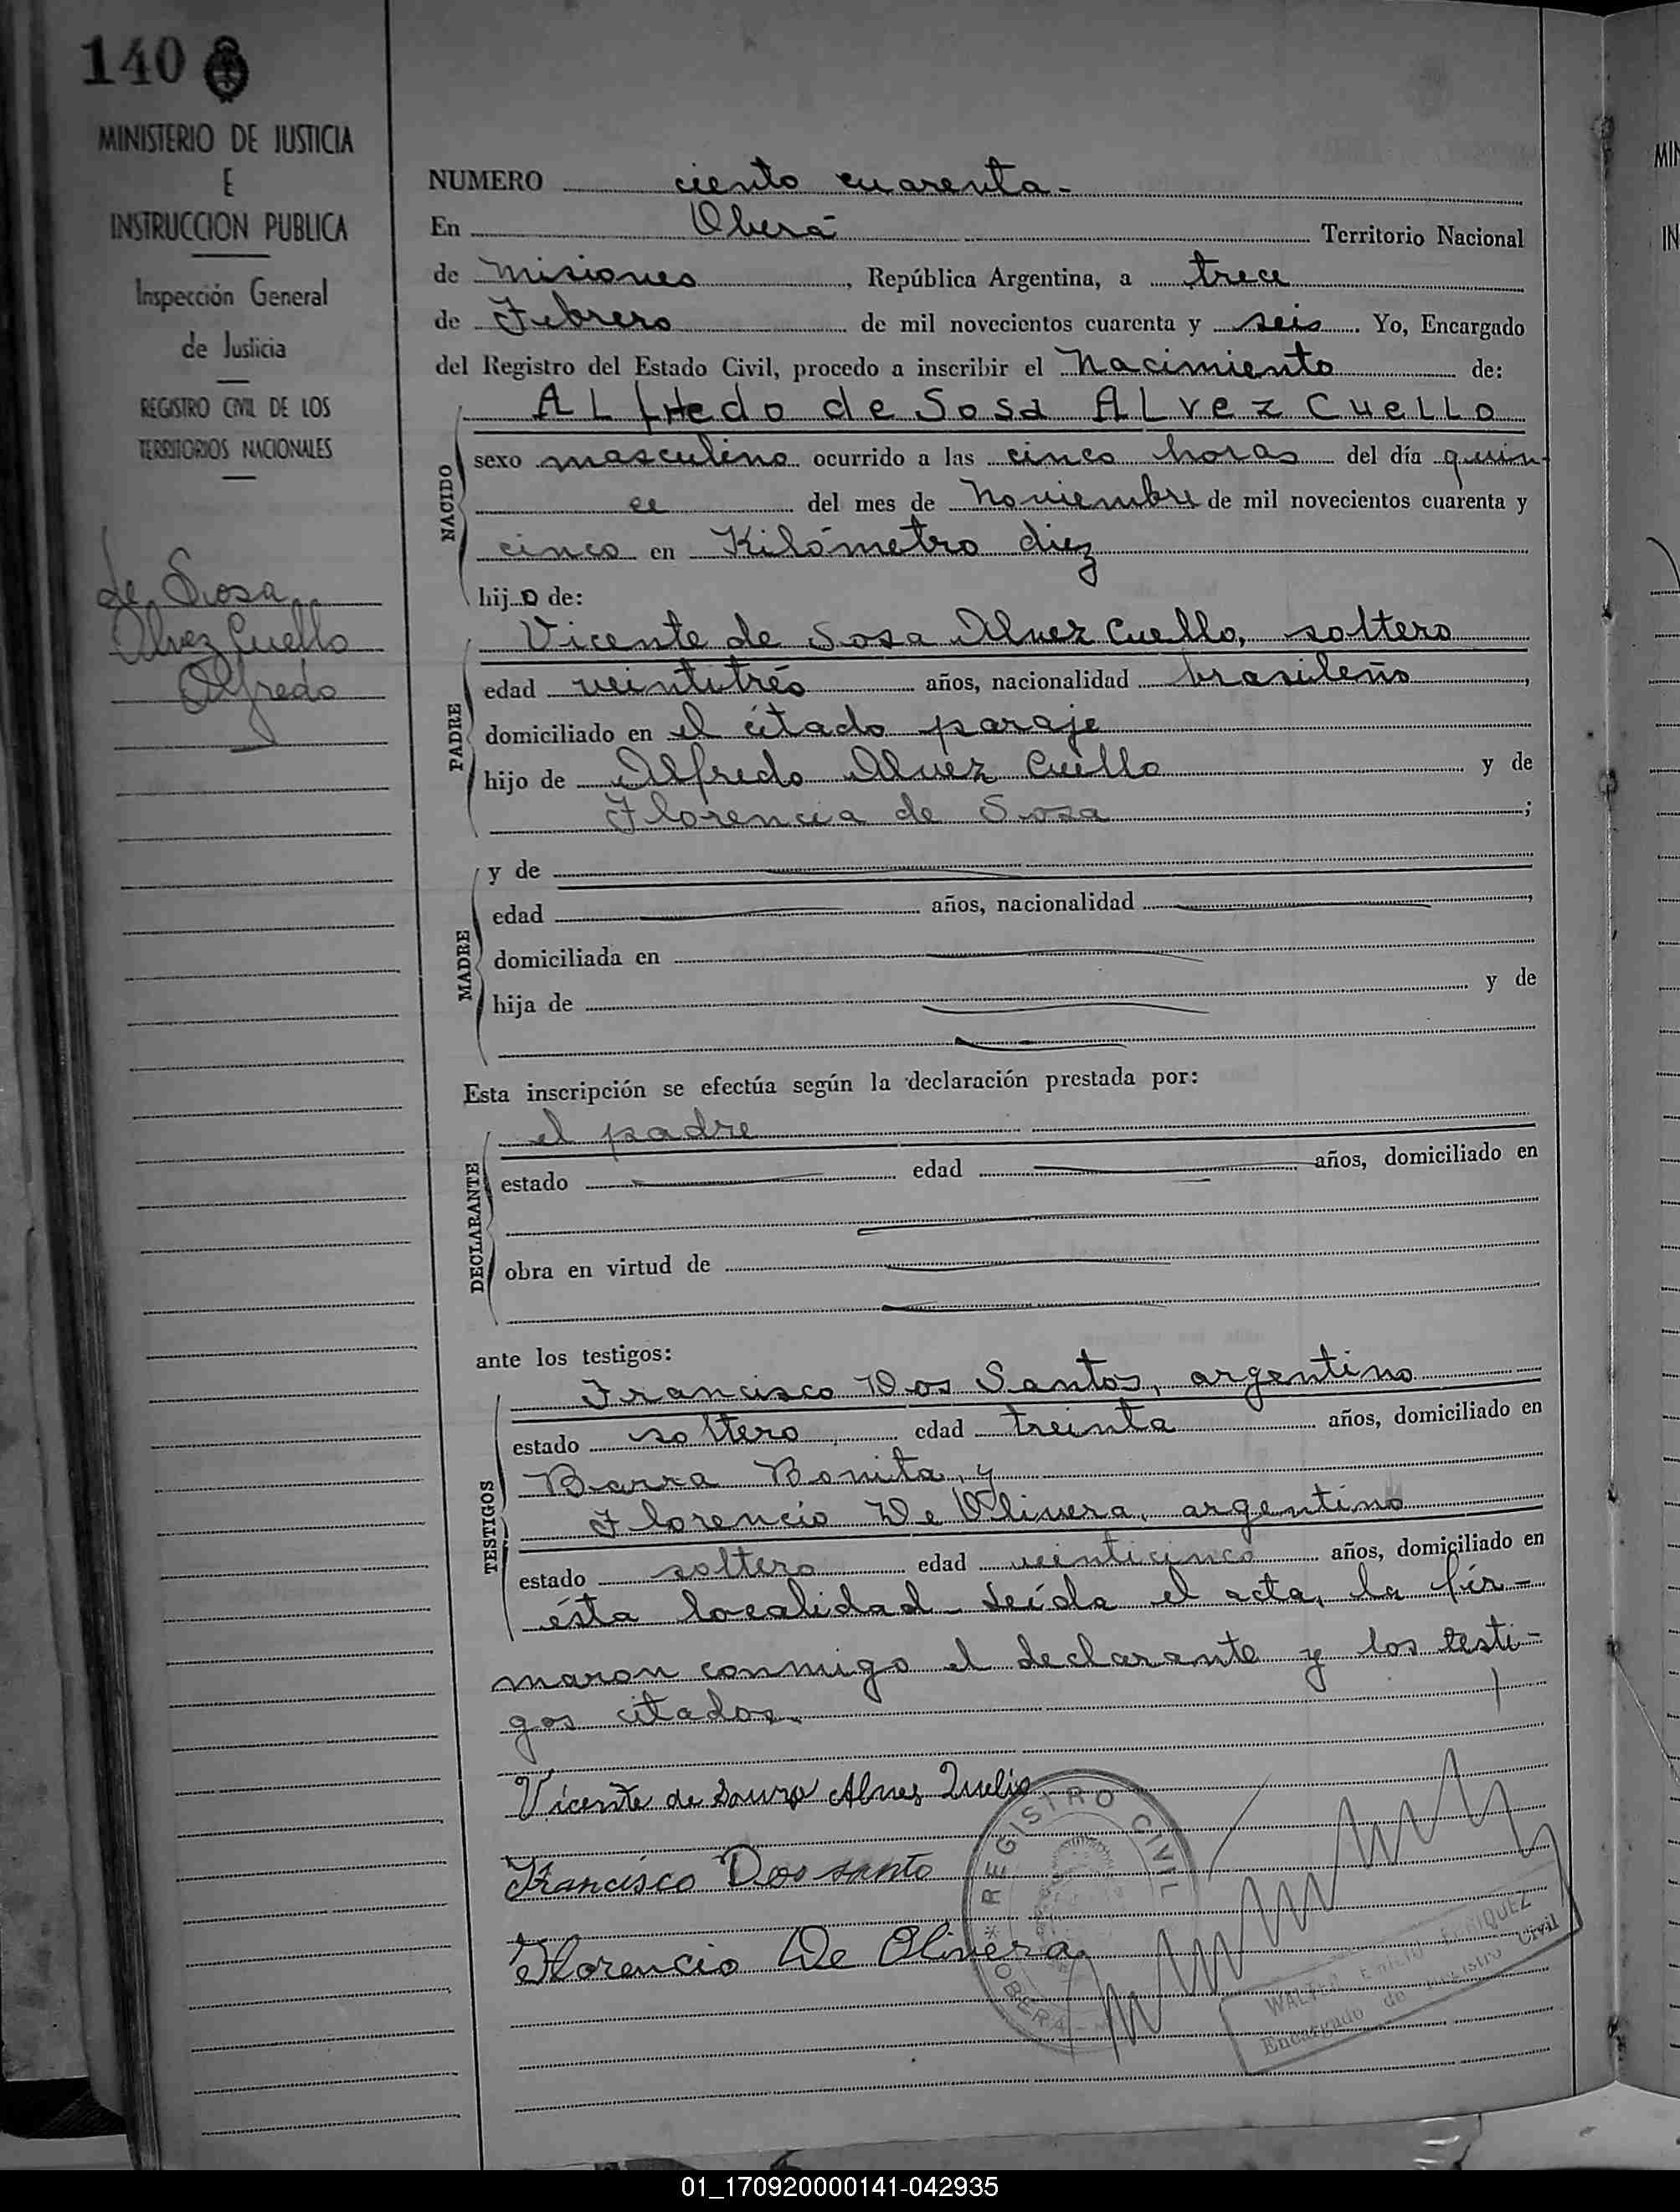 140
MINISTERIO DE JUSTICIA
E
INSTRUCCION PUBLICA
Inspección General
de Justicia
REGISTRO CIVIL DE LOS
TERRITORIOS NACIONALES
de Sosa
Alvez Cuello
Alfredo
NUMERO ciento cuarenta-
En Oberá Territorio Nacional
de Misiones, República Argentina, a trece
de Febrero de mil novecientos cuarenta y seis. Yo, Encargado
del Registro del Estado Civil, procedo a inscribir el Nacimiento de:
ALfredo de Sosa ALvez CueLLo
NACIDO
sexo masculino ocurrido a las cinco horas del día quin-
ce del mes de Noviembre de mil novecientos cuarenta y
cinco en Kilómetro diez
hijo de:
PADRE
Vicente de Sosa Alvez Cuello, soltero
edad veintitrés años, nacionalidad brasileño,
domiciliado en el citado paraje
hijo de Alfredo Alvez Cuello y de
Florencia de Sosa;
MADRE
y de
edad años, nacionalidad,
domiciliada en
hija de y de
Esta inscripción se efectúa según la declaración prestada por:
DECLARANTE
el padre
estado edad años, domiciliado en
obra en virtud de
ante los testigos:
TESTIGOS
Francisco Dos Santos, argentino
estado soltero, edad treinta años, domiciliado en
Barra Bonita, y
Florencio De Olivera, argentino
estado soltero edad veinticinco años, domiciliado en
ésta localidad- Leída el acta, la fir-
maron conmigo el declarante y los testi-
gos citados.
Vicente de Souza Alves Quelio
Francisco Dos santo
Florencio De Olivera
REGISTRO CIVIL
* OBERA -
WALTER ENRIQUEZ
Encargado de Registro Civil
MIN
IN
01_170920000141-042935